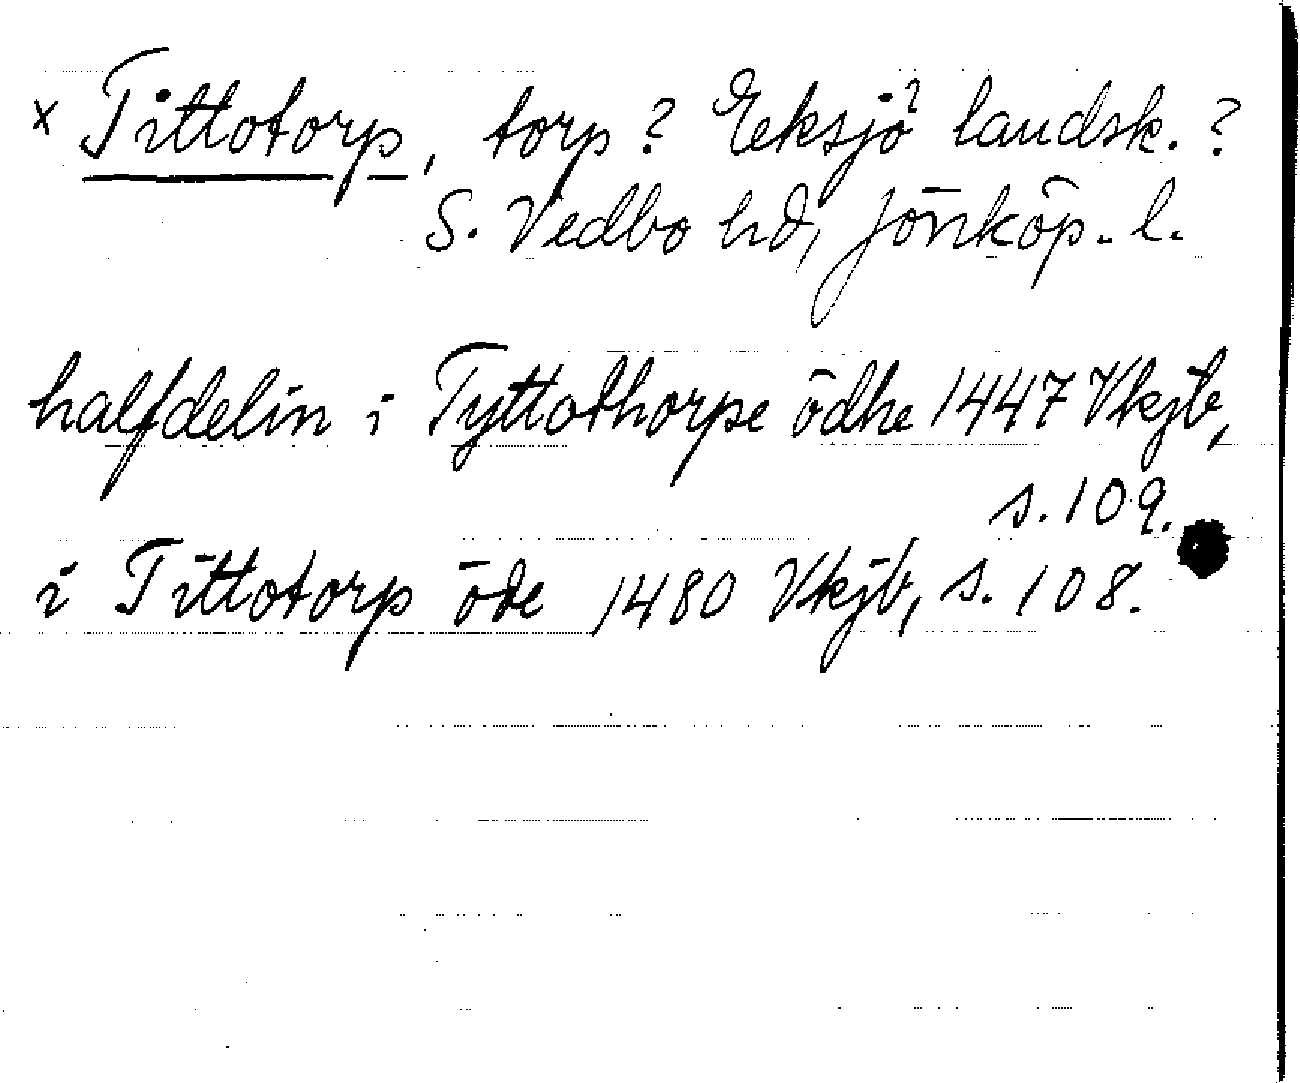 x Tittotorp, torp? Eksjö? landsk.?
S. Vedbo hd, Jönköp. l.
halfdelin i Tyttothorpe ödhe 1447 Vkjb,
s. 109.
i Tittotorp öde 1480 Vkjb, s. 108.